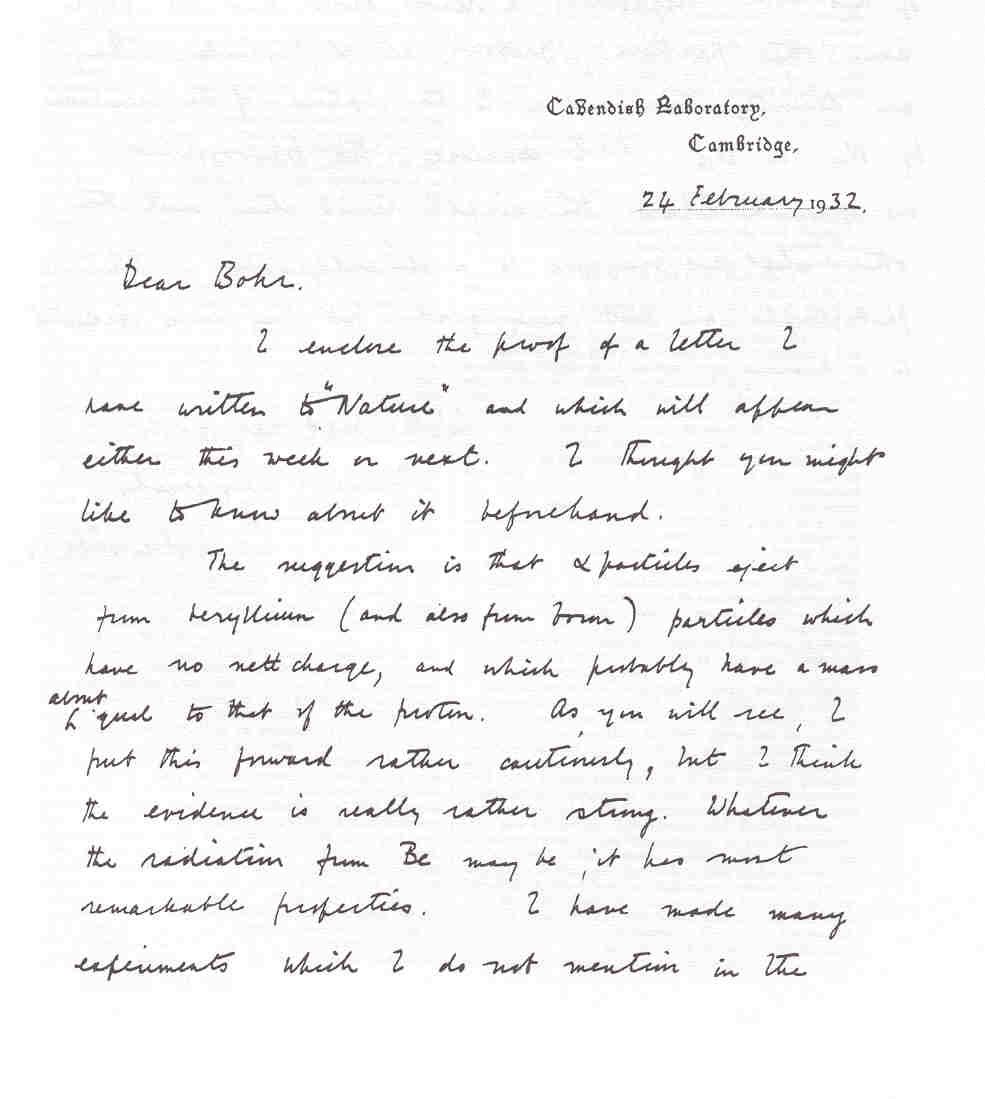 Cavendish Laboratory,
Cambridge,
24 February 1932.
Dear Bohr.
I enclose the proof of a letter I
have written to "Nature" and which will appear
either this week or next. I thought you might
like to know about it beforehand.
The suggestion is that α particles eject
from beryllium (and also from boron) particles which
have no nett charge, and which probably have a mass
about
equal to that of the proton. As you will see, I
put this forward rather cautiously, but I think
the evidence is really rather strong. Whatever
the radiation from Be may be, it has most
remarkable properties. I have made many
experiments which I do not mention in the